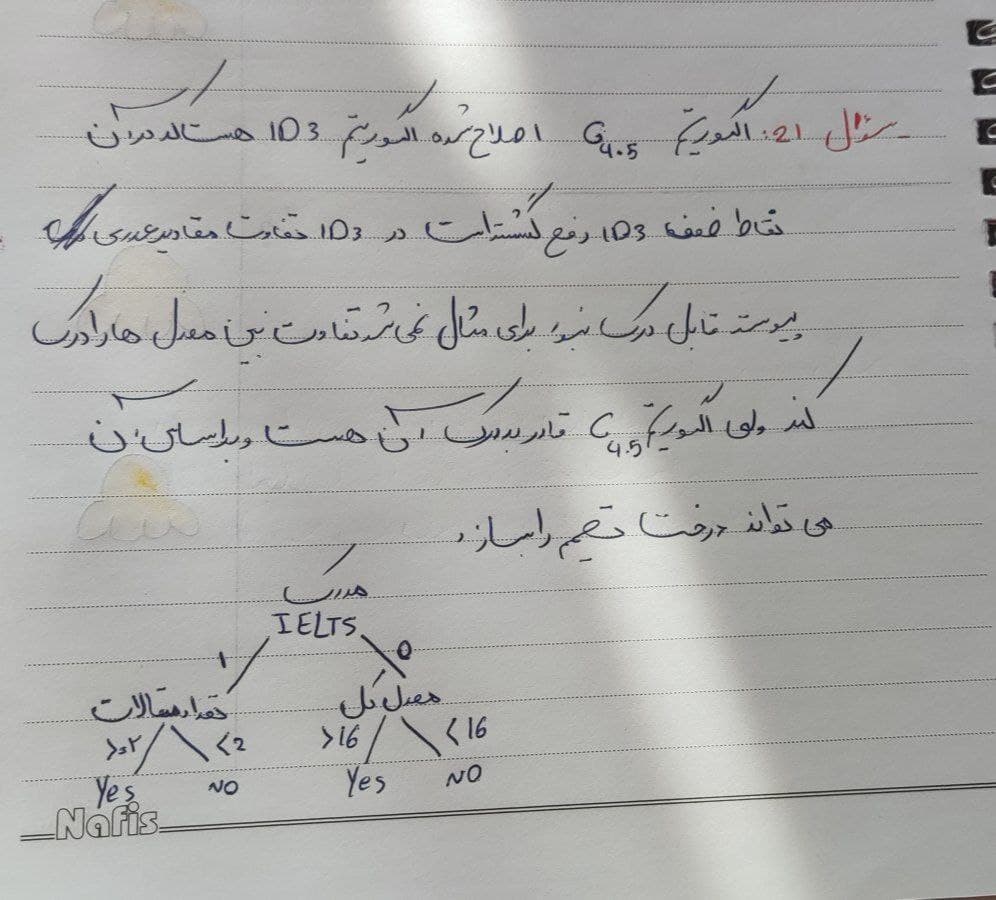 سؤال 21: الگوریتم C4.5 اصلاح شده الگوریتم ID3 هست که در آن
نقاط ضعف ID3 رفع گشته است در ID3 تفاوت مقادیر عددی
پیوسته قابل درک نبود برای مثال نمی شد تفاوت بین معدل ها را درک
کند ولی الگوریتم C4.5 قادر به درک آن هست و بر اساس آن
می تواند درخت تصمیم را بسازد.
مدرک
IELTS
1 0
تعداد مقالات معدل کل
>=2 <2 >16 <16
Yes NO Yes NO
Nafis